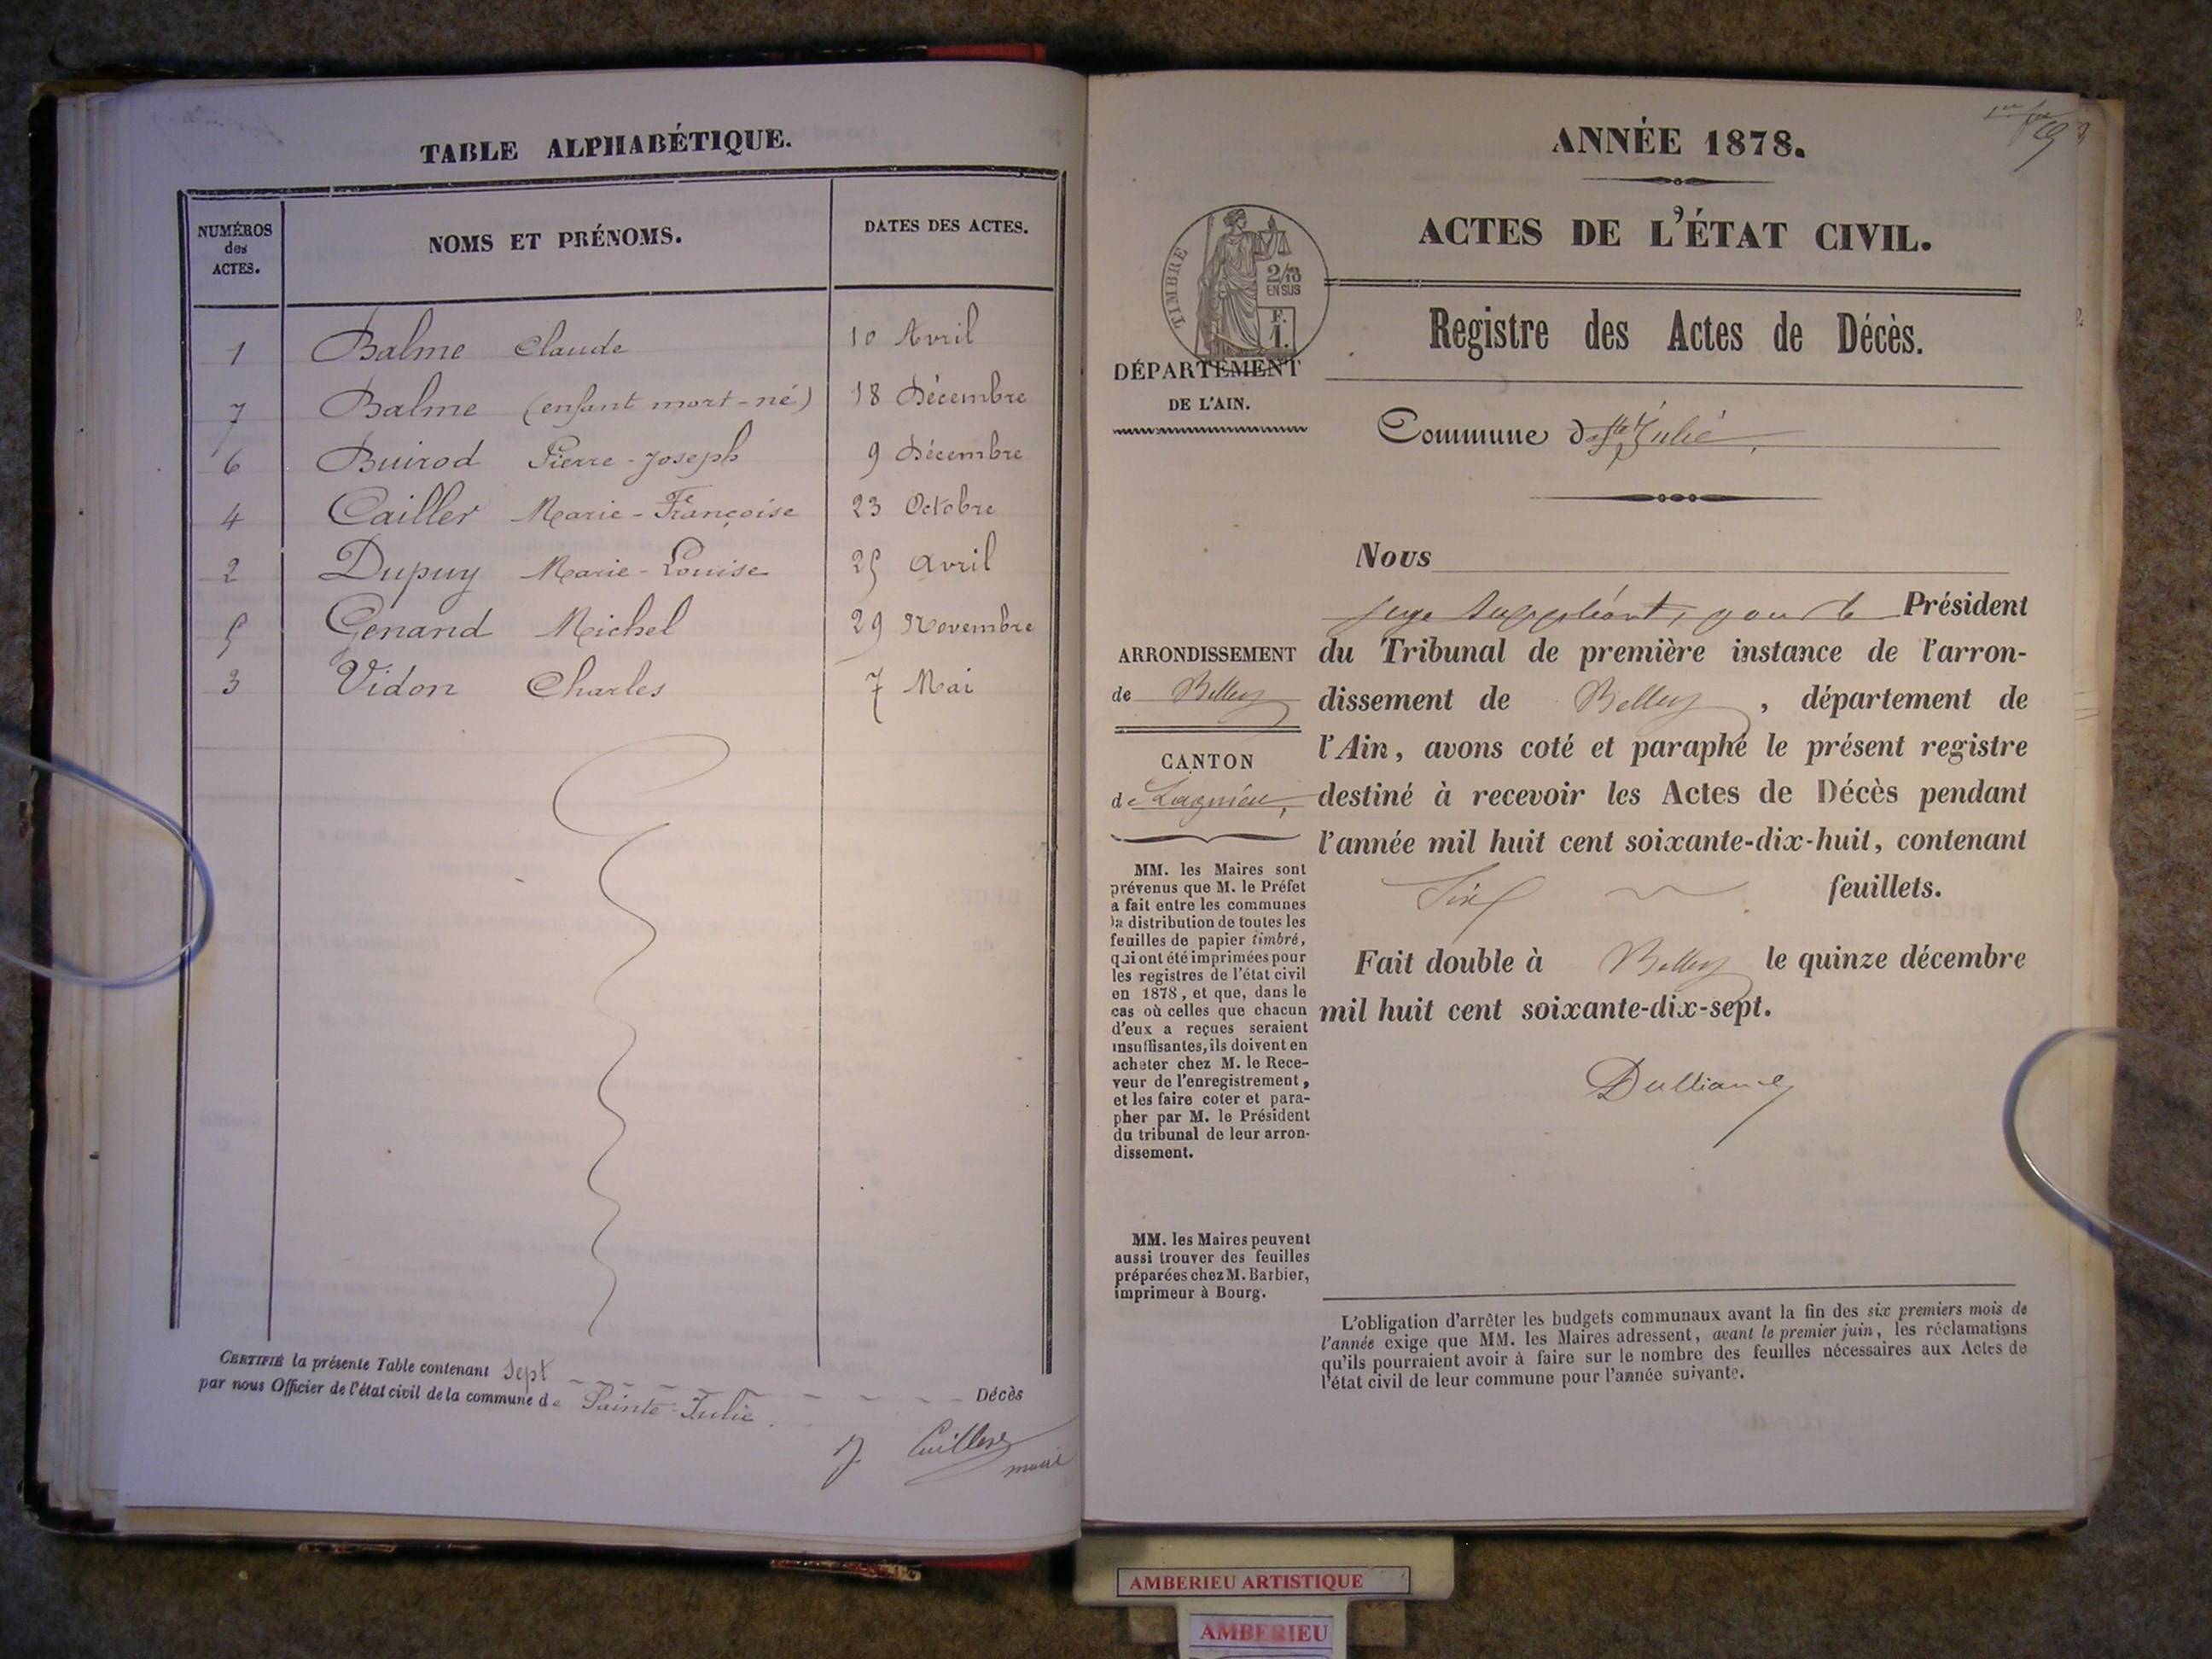 TABLE ALPHABÉTIQUE.
NUMÉROS des ACTES. NOMS ET PRÉNOMS. DATES DES ACTES.
1 Balme Claude 10 Avril
7 Balme (enfant mort-né) 18 Décembre
6 Buirod Pierre-Joseph 9 Décembre
4 Cailler Marie-Françoise 23 Octobre
2 Dupuy Marie-Louise 25 Avril
5 Genand Michel 29 Novembre
3 Vidon Charles 7 Mai
CERTIFIÉ la présente Table contenant Sept Décès
par nous Officier de l'état civil de la commune de Sainte-Julie.
maire
ANNÉE 1878.
ACTES DE L'ÉTAT CIVIL.
TIMBRE
2/10
EN SUS
F.
1.
Registre des Actes de Décès.
DÉPARTEMENT
DE L'AIN.
Commune de Ste Julie
Nous
juge suppléant, pour le Président
du Tribunal de première instance de l'arron-
dissement de Belley, département de
l'Ain, avons coté et paraphé le présent registre
destiné à recevoir les Actes de Décès pendant
l'année mil huit cent soixante-dix-huit, contenant
Six feuillets.
Fait double à Belley le quinze décembre
mil huit cent soixante-dix-sept.
ARRONDISSEMENT
de Belley
CANTON
de Lagnieu,
MM. les Maires sont
prévenus que M. le Préfet
a fait entre les communes
la distribution de toutes les
feuilles de papier timbré,
qui ont été imprimées pour
les registres de l'état civil
en 1878, et que, dans le
cas où celles que chacun
d'eux a reçues seraient
insuffisantes, ils doivent en
acheter chez M. le Rece-
veur de l'enregistrement,
et les faire coter et para-
pher par M. le Président
du tribunal de leur arron-
dissement.
MM. les Maires peuvent
aussi trouver des feuilles
préparées chez M. Barbier,
imprimeur à Bourg.
L'obligation d'arrêter les budgets communaux avant la fin des six premiers mois de
l'année exige que MM. les Maires adressent, avant le premier juin, les réclamations
qu'ils pourraient avoir à faire sur le nombre des feuilles nécessaires aux Actes de
l'état civil de leur commune pour l'année suivante.
AMBERIEU ARTISTIQUE
AMBERIEU